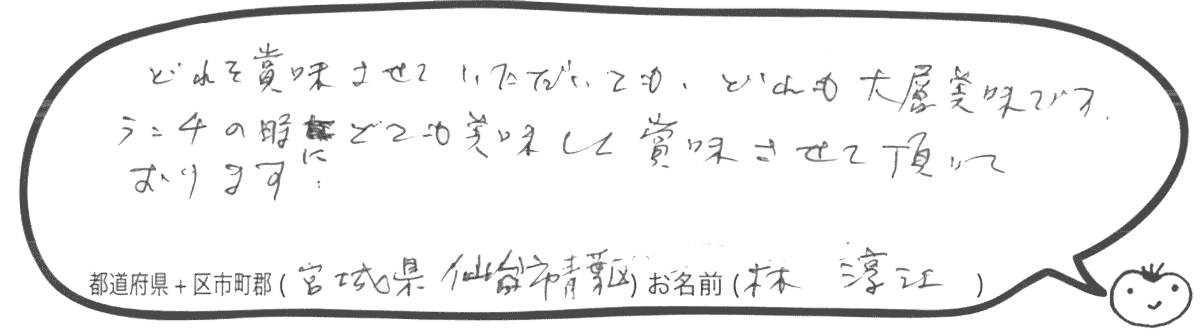 どれを賞味させていただいても、どれも大層美味です.
ランチの時にとても美味しく賞味させて頂いて
おります.
都道府県+区市町郡(宮城県 仙台市青葉区)お名前(林 淳江)